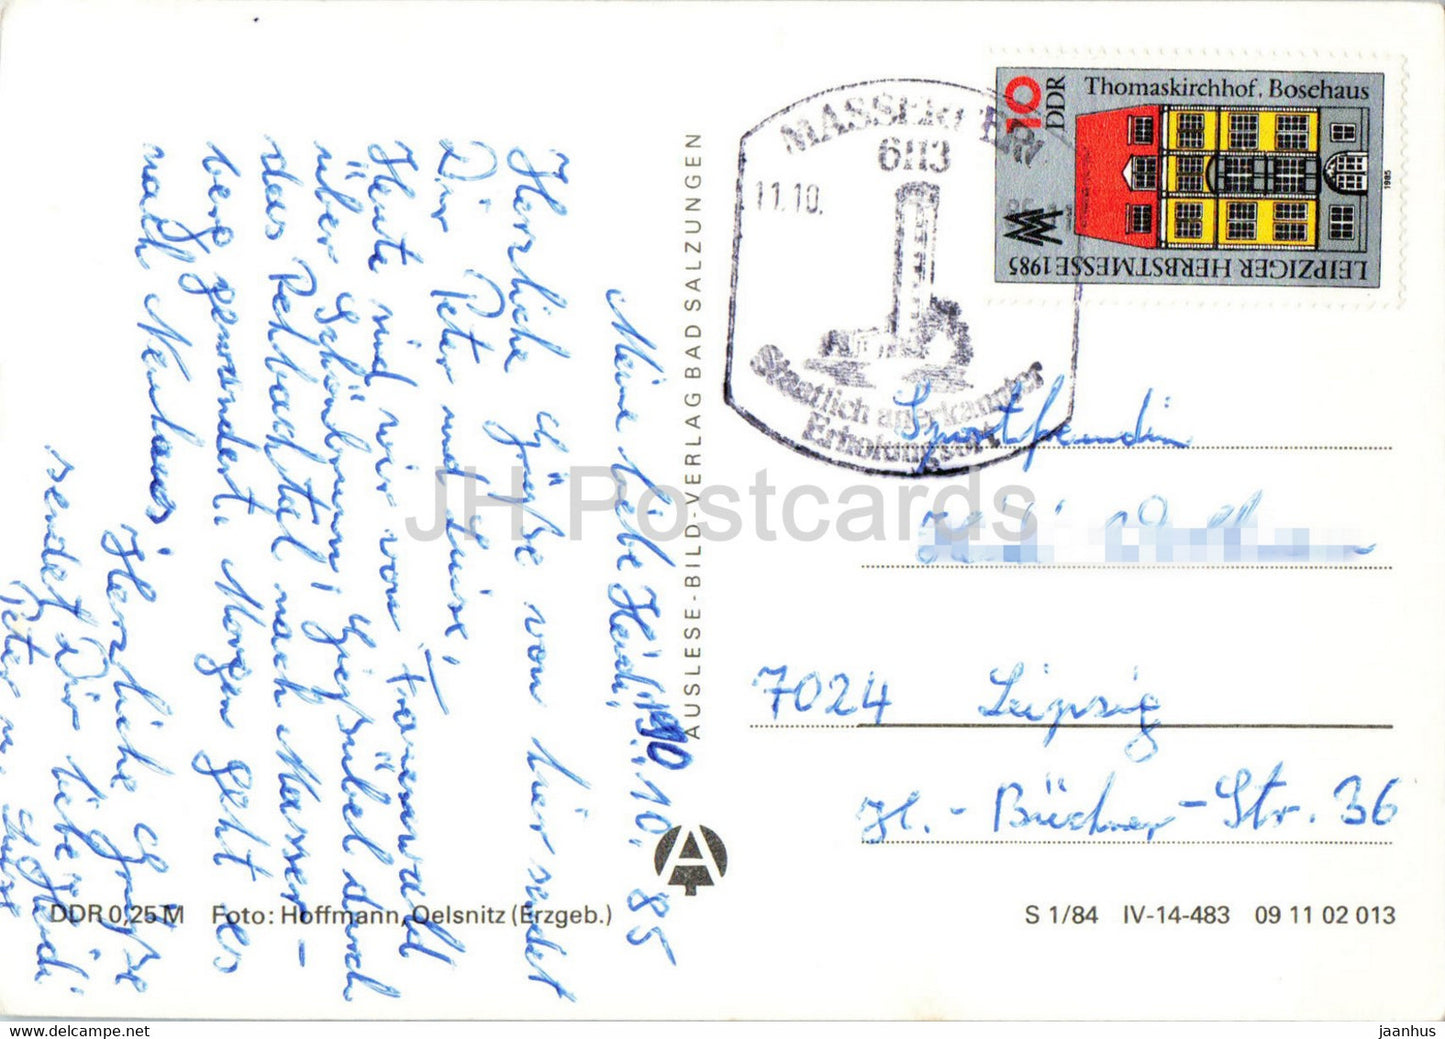 Meine liebe Heidi, 10.10.85
Herzliche Grüße von hier sendet
Dir Peter und Luise!
Heute sind wir von Frauenwald
über Schönbrunn, Gießübel durch
das Rehbachtal nach Masser-
berg gewandert. Morgen geht es
nach Neuhaus.
Herzliche Grüße
sendet Dir liebe Heidi
Peter u. Luise
AUSLESE-BILD-VERLAG BAD SALZUNGEN
A
DDR 0,25 M Foto: Hoffmann, Oelsnitz (Erzgeb.)
MASSERBERG
6113
11.10.
Staatlich anerkannter
Erholungsort
10
DDR
Thomaskirchhof, Bosehaus
1985
LEIPZIGER HERBSTMESSE 1985
Sportfreundin
7024 Leipzig
H.-Büchner-Str. 36
S 1/84 IV-14-483 09 11 02 013
JH Postcards
www.delcampe.net
jaanhus